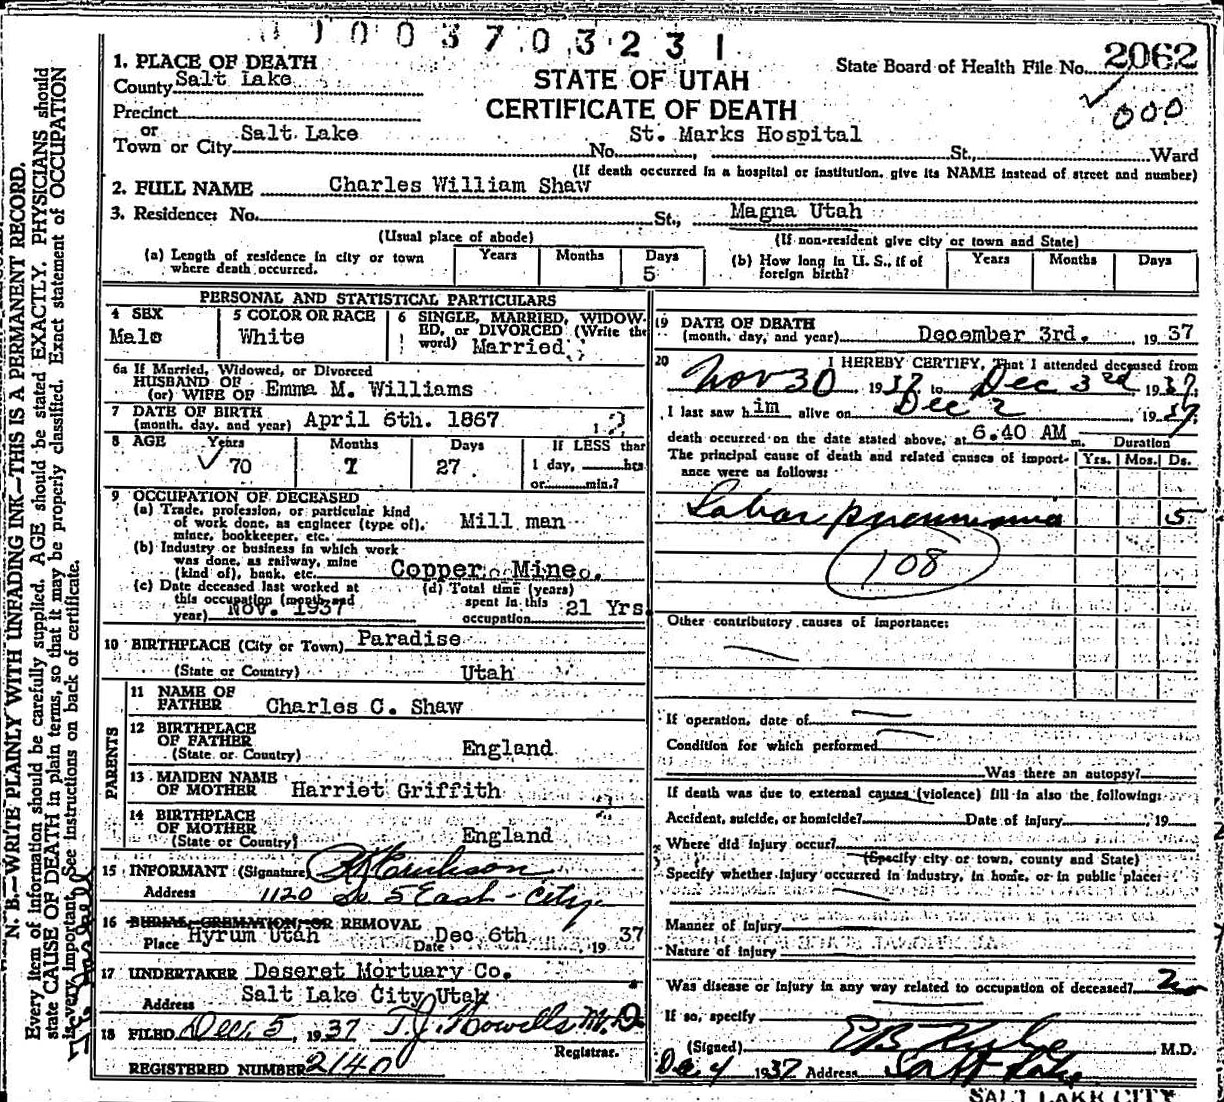 1 0 0 3 7 0 3 2 3 1
1. PLACE OF DEATH
County Salt Lake
STATE OF UTAH
CERTIFICATE OF DEATH
State Board of Health File No. 2062
000
Precinct
or
Town or City Salt Lake No. St. Marks Hospital St., Ward
(If death occurred in a hospital or institution, give its NAME instead of street and number)
2. FULL NAME Charles William Shaw
3. Residence: No. St., Magna Utah
(Usual place of abode)
(If non-resident give city or town and State)
(a) Length of residence in city or town where death occurred. Years Months Days 5
(b) How long in U. S., if of foreign birth? Years Months Days
PERSONAL AND STATISTICAL PARTICULARS
4 SEX Male
5 COLOR OR RACE White
6 SINGLE, MARRIED, WIDOW-
ED, or DIVORCED (Write the
word) Married
6a If Married, Widowed, or Divorced
HUSBAND OF
(or) WIFE OF Emma M. Williams
7 DATE OF BIRTH
(month, day, and year) April 6th. 1867
8 AGE Years 70 Months 7 Days 27
If LESS than
1 day, hrs
or min.?
9 OCCUPATION OF DECEASED
(a) Trade, profession, or particular kind
of work done, as engineer (type of),
miner, bookkeeper, etc. Mill man
(b) Industry or business in which work
was done, as railway, mine
(kind of), bank, etc. Copper Mine.
(c) Date deceased last worked at
this occupation (month and
year) Nov. 1937
(d) Total time (years)
spent in this
occupation 21 Yrs.
10 BIRTHPLACE (City or Town) Paradise
(State or Country) Utah
PARENTS
11 NAME OF
FATHER Charles C. Shaw
12 BIRTHPLACE
OF FATHER
(State or Country) England
13 MAIDEN NAME
OF MOTHER Harriet Griffith
14 BIRTHPLACE
OF MOTHER
(State or Country) England
15 INFORMANT (Signature)
Address 1120 So. 5 East - City
16 BURIAL, CREMATION, OR REMOVAL
Place Hyrum Utah Date Dec 6th 19 37
17 UNDERTAKER Deseret Mortuary Co.
Address Salt Lake City Utah
18 FILED Dec. 5, 1937 T. J. Howells M.D.
Registrar.
REGISTERED NUMBER 2140
19 DATE OF DEATH
(month, day, and year) December 3rd. 19 37
20 I HEREBY CERTIFY, That I attended deceased from
Nov 30 1937 to Dec 3rd 1937,
I last saw him alive on Dec 2 1937,
death occurred on the date stated above, at 6.40 AM m. Duration
The principal cause of death and related causes of import-
ance were as follows: Yrs. Mos. Ds.
Lobar pneumonia 5
108
Other contributory causes of importance:
If operation, date of
Condition for which performed
Was there an autopsy?
If death was due to external causes (violence) fill in also the following:
Accident, suicide, or homicide? Date of injury 19
Where did injury occur?
(Specify city or town, county and State)
Specify whether injury occurred in industry, in home, or in public place:
Manner of injury
Nature of injury
Was disease or injury in any way related to occupation of deceased? No
If so, specify
(Signed) M.D.
Dec 4 1937 Address Salt Lake
SALT LAKE CITY
N. B.—WRITE PLAINLY WITH UNFADING INK—THIS IS A PERMANENT RECORD.
Every item of information should be carefully supplied. AGE should be stated EXACTLY. PHYSICIANS should
state CAUSE OF DEATH in plain terms, so that it may be properly classified. Exact statement of OCCUPATION
is very important. See instructions on back of certificate.